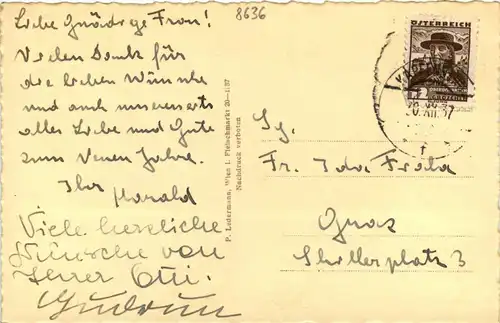 Liebe Gnädige Frau!
Vielen Dank für
die lieben Wünsche
und auch unsererseits
alles Liebe und Gute
zum Neuen Jahre.
Ihr
Harald
Viele herzliche
Wünsche von
Ihrer Otti.
Gudrun
8636
P. Ledermann, Wien I. Fleischmarkt 20—1937
Nachdruck verboten
ÖSTERREICH
XII.37
f
Fr. Ida
Graz
Schillerplatz 3